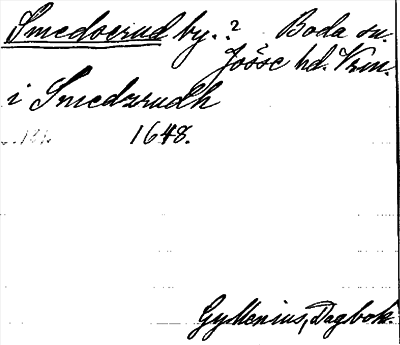 Smedserud by.? Boda sn.
Jösse hd. Vrm.
i Smedzrudh
1648.
Gyllenius, Dagbok.